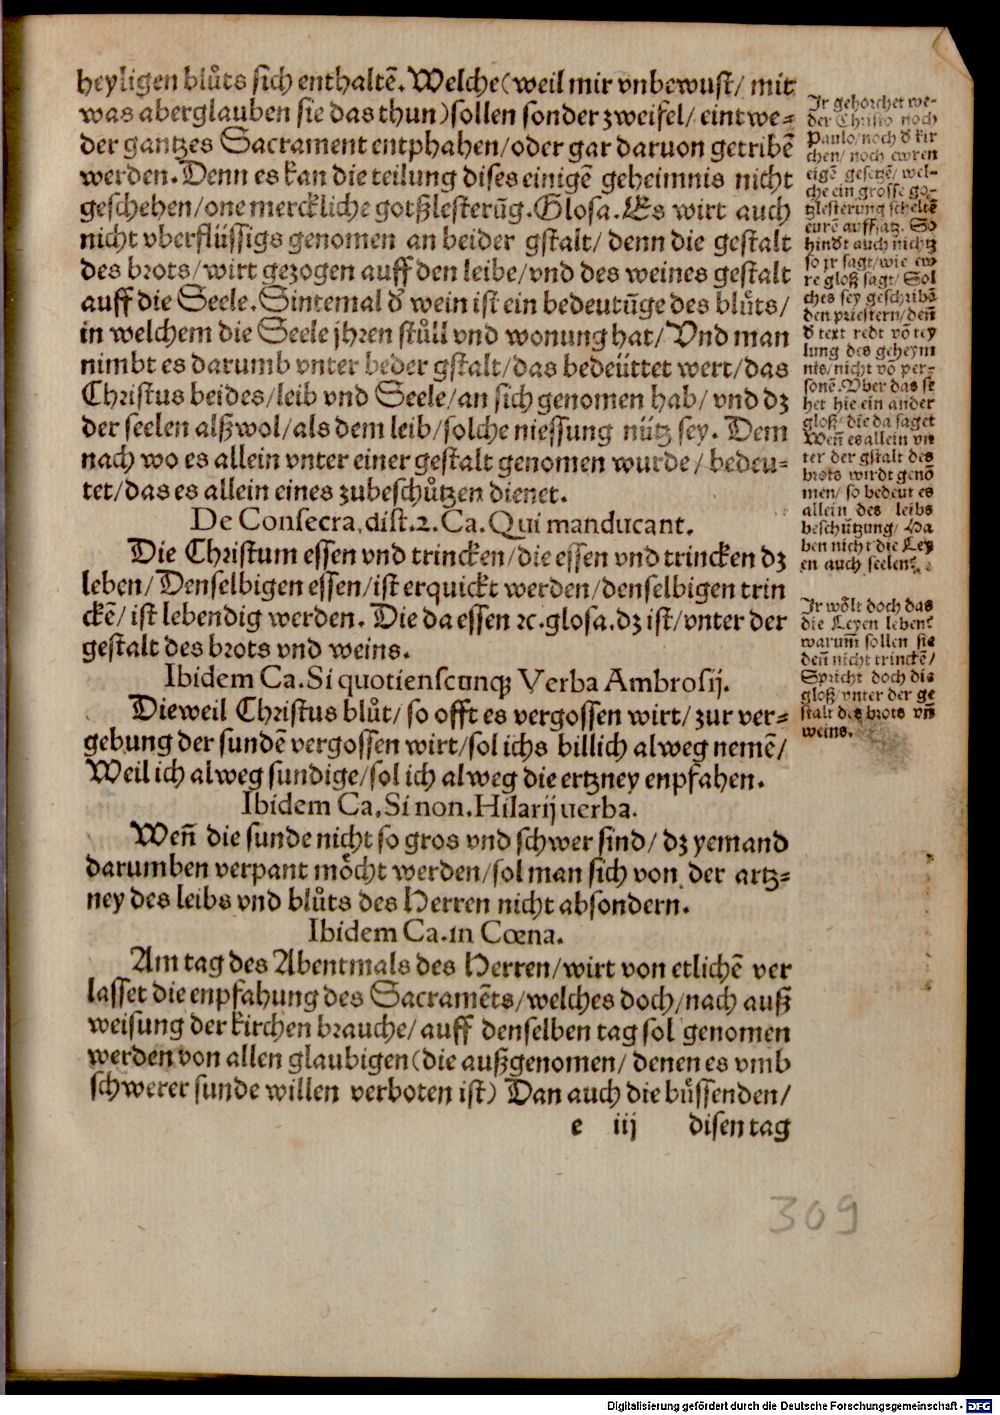 heyligen blůts sich enthaltē. Welche (weil mir vnbewust/ mit
was aberglauben sie das thun) sollen sonder zweifel/ eintwe⸗
der gantzes Sacrament entphahen/ oder gar daruon getribē
werden. Denn es kan die teilung dises einigē geheimnis nicht
geschehen/ one merckliche gotßlesterūg. Glosa. Es wirt auch
nicht vberflüssigs genomen an beider gstalt/ denn die gestalt
des brots/ wirt gezogen auff den leibe/ vnd des weines gestalt
auff die Seele. Sintemal d̓ wein ist ein bedeutūge des blůts/
in welchem die Seele jhren stůll vnd wonung hat/ Vnd man
nimbt es darumb vnter beder gstalt/ das bedeüttet wert/ das
Christus beides/ leib vnd Seele/ an sich genomen hab/ vnd dz
der seelen alß wol/ als dem leib/ solche niessung nütz sey. Dem
nach wo es allein vnter einer gestalt genomen wurde/ bedeu⸗
tet/ das es allein eines zubeschůtzen dienet.
De Consecra. dist. 2. Ca. Qui manducant.
Die Christum essen vnd trincken/ die essen vnd trincken dz
leben/ Denselbigen essen/ ist erquickt werden/ denselbigen trin
ckē/ ist lebendig werden. Die da essen ꝛc. glosa. dz ist/ vnter der
gestalt des brots vnd weins.
Ibidem Ca. Si quotienscunqꝫ Verba Ambrosij.
Dieweil Christus blůt/ so offt es vergossen wirt/ zur ver⸗
gebung der sundē vergossen wirt/ sol ichs billich alweg nemē/
Weil ich alweg sundige/ sol ich alweg die ertzney enpfahen.
Ibidem Ca. Si non. Hilarij uerba.
Weñ die sunde nicht so gros vnd schwer sind/ dz yemand
darumben verpant möcht werden/ sol man sich von der artz⸗
ney des leibs vnd blůts des Herren nicht absondern.
Ibidem Ca. in Cœna.
Am tag des Abentmals des Herren/ wirt von etlichē ver
lasset die enpfahung des Sacramēts/ welches doch/ nach auß
weisung der kirchen brauche/ auff denselben tag sol genomen
werden von allen glaubigen (die außgenomen/ denen es vmb
schwerer sunde willen verboten ist) Dan auch die bůssenden/
e iij disen tag
Ir gehorchet we⸗
der Christo noch
Paulo/ noch d̓ kir
chen/ noch ewren
eigē gesetzē/ wel⸗
che ein grosse go⸗
tzlesterung scheltē
eurē auffsatz. So
hindt auch nichtz
so jr sagt/ wie ew
re gloß sagt/ Sol
ches sey geschribē
den priestern/ deñ
d̓ text redt vō tey
lung des geheym
nis/ nicht vō per⸗
sonē. Vber das ste
het hie ein ander
gloß/ die da saget
Weñ es allein vn
ter der gstalt des
brots wirdt genō
men/ so bedeut es
allein des leibs
beschützung/ Ha
ben nicht die Ley
en auch seelen?
Ir wölt doch das
die Leyen leben?
warum̃ sollen sie
deñ nicht trinckē/
Spricht doch die
gloß/ vnter der ge
stalt des brots vñ
weins.
309
Digitalisierung gefördert durch die Deutsche Forschungsgemeinschaft - DFG